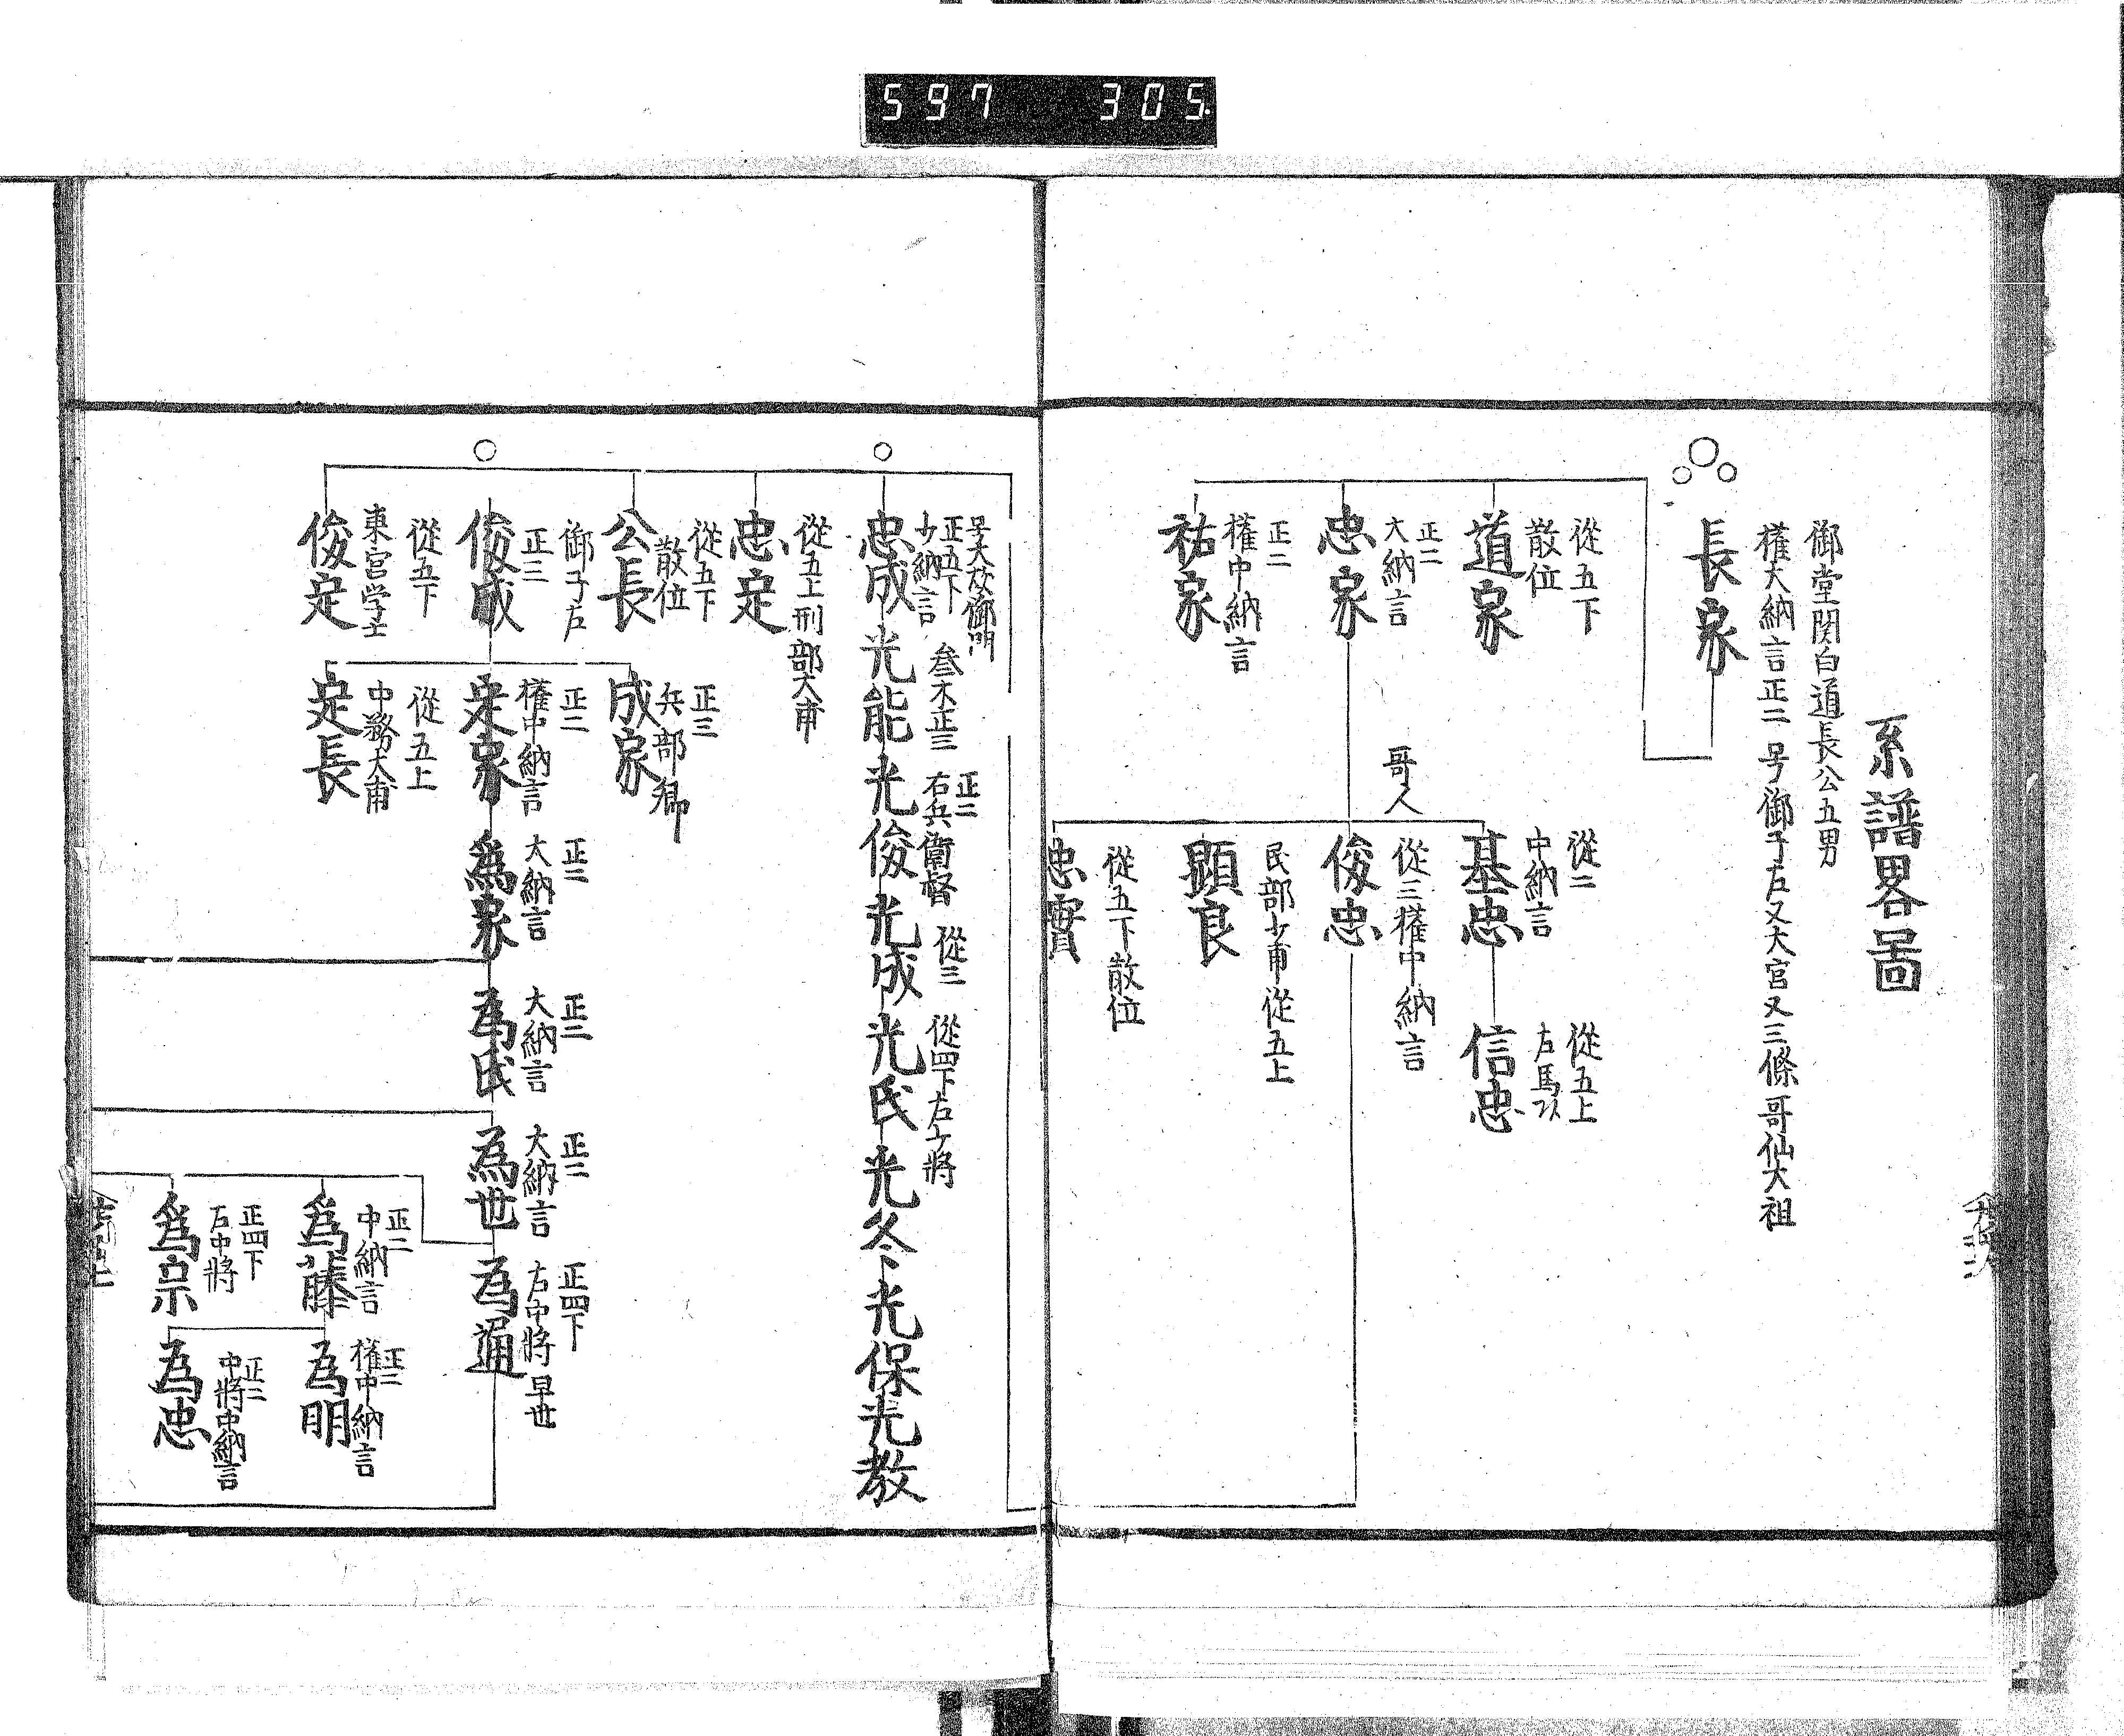 597 305
系譜畧啚
御堂関白道長公五男
權大納言正二 号御子左又大宮又三條 哥仙大祖
長家
從五下
散位
道家
正二
大納言
忠家
正二
權中納言
祐家
從二
中納言
基忠
從五上
右馬以
信忠
哥人
從三權中納言
俊忠
民部少甫從五上
顕良
從五下散位
忠實
号大炊御門
正五下
少納言
忠成
叄木正三
光能
正二
右兵衛督
光俊
從三
光成
從四下左少將
光氏
光冬
光保
光教
從五上刑部大甫
忠定
從五下
散位
公長
御子左
正三
俊成
從五下
東宮学士
俊定
正三
兵部卿
成家
正二
權中納言
定家
從五上
中務大甫
定長
正二
大納言
爲家
正二
大納言
為氏
正二
大納言
為世
正四下
右中將早世
為通
正二
中納言
爲藤
正四下
右中將
爲宗
正二
權中納言
為明
正二
中將中納言
為忠